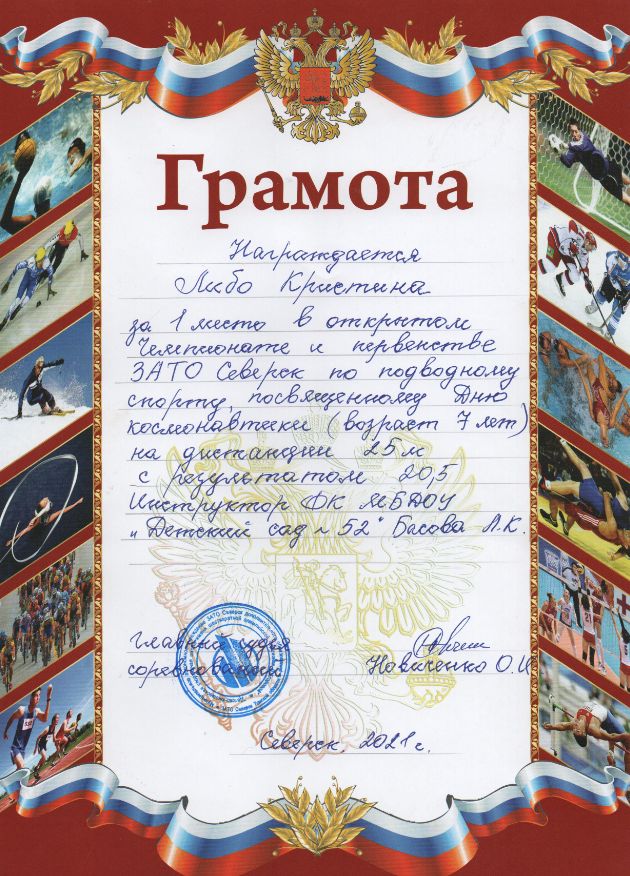 Грамота
Награждается
Либо Кристина
за 1 место в открытом
Чемпионате и первенстве
ЗАТО Северск по подводному
спорту, посвященному Дню
космонавтики (возраст 7 лет)
на дистанции 25 м
с результатом 20,5
Инструктор ФК МБДОУ
"Детский сад № 52" Басова Л.К.
Главный судья
соревнований Новиченко О.И
Северск, 2021 г.